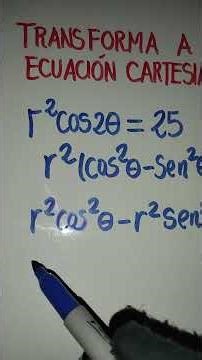 TRANSFORMA A
ECUACIÓN CARTESIA
r²cos2θ = 25
r²(cos²θ-sen²θ
r²cos²θ-r²sen²